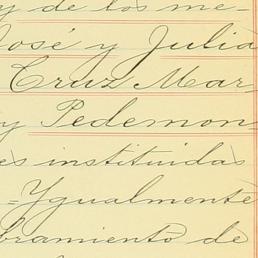 y de los me-
José y Julia
Cruz Mar
y Pedemon-
es instituidas
- Ygualmente
bramiento de